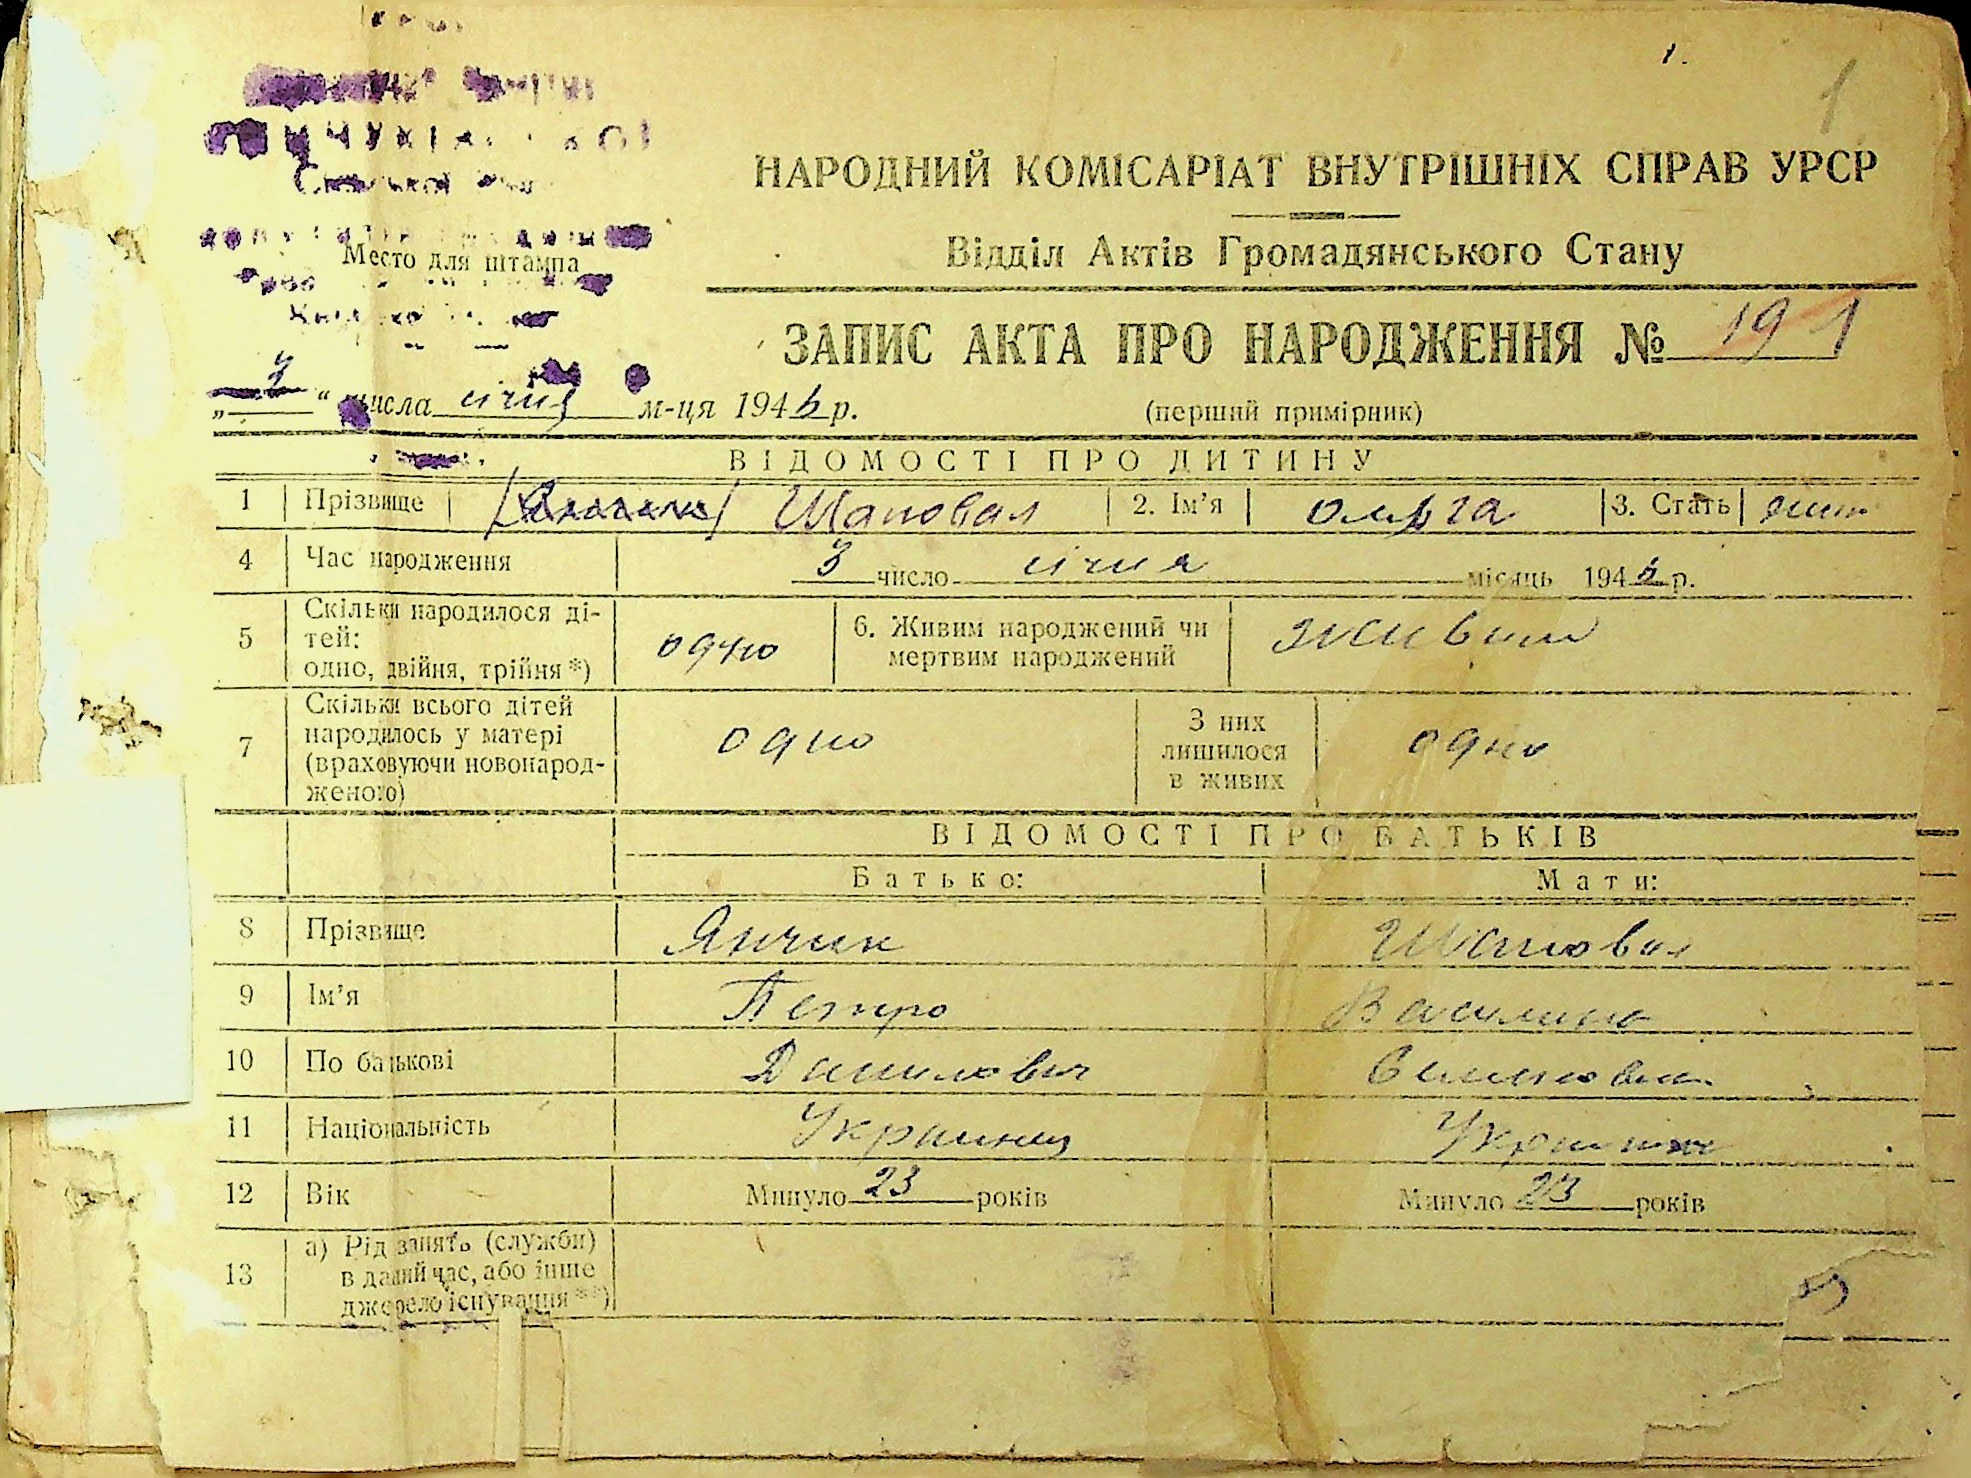 1.
1
НАРОДНИЙ КОМІСАРІАТ ВНУТРІШНІХ СПРАВ УРСР
Відділ Актів Громадянського Стану
Место для штампа
ЗАПИС АКТА ПРО НАРОДЖЕННЯ № 1
„ “ числа січня м-ця 194 р.
(перший примірник)
ВІДОМОСТІ ПРО ДИТИНУ
1 Прізвище Шаповал 2. Ім’я Ольга 3. Стать
4 Час народження 3 число січня місяць 194 р.
5 Скільки народилося ді-
тей:
одно, двійня, трійня*) одно
6. Живим народжений чи
мертвим народжений живим
7 Скільки всього дітей
народилось у матері
(враховуючи новонарод-
женого) одно
З них
лишилося
в живих одно
ВІДОМОСТІ ПРО БАТЬКІВ
Батько: Мати:
8 Прізвище Янчик Шаповал
9 Ім’я Петро Василина
10 По батькові Данилович
11 Національність Украинец Украинка
12 Вік Минуло 23 років Минуло 23 років
13 а) Рід занять (служби)
в даний час, або інше
джерело існування**)